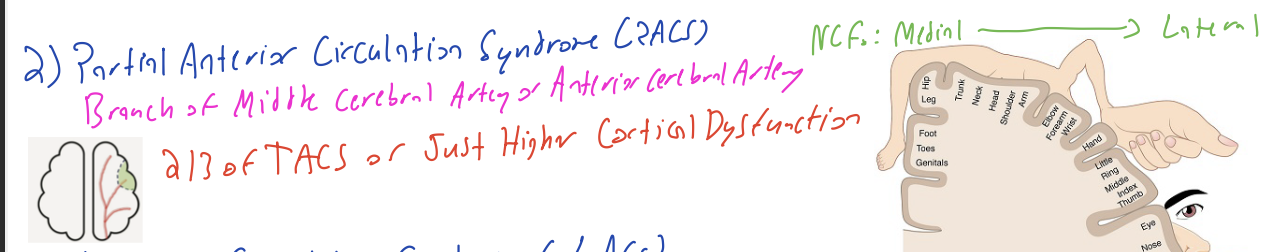 2) Partial Anterior Circulation Syndrome (PACS)
Branch of Middle Cerebral Artery or Anterior Cerebral Artery
2/3 of TACS or Just Higher Cortical Dysfunction
NCFs: Medial → Lateral
Hip
Leg
Foot
Toes
Genitals
Trunk
Neck
Head
Shoulder
Arm
Elbow
Forearm
Wrist
Hand
Little
Ring
Middle
Index
Thumb
Eye
Nose